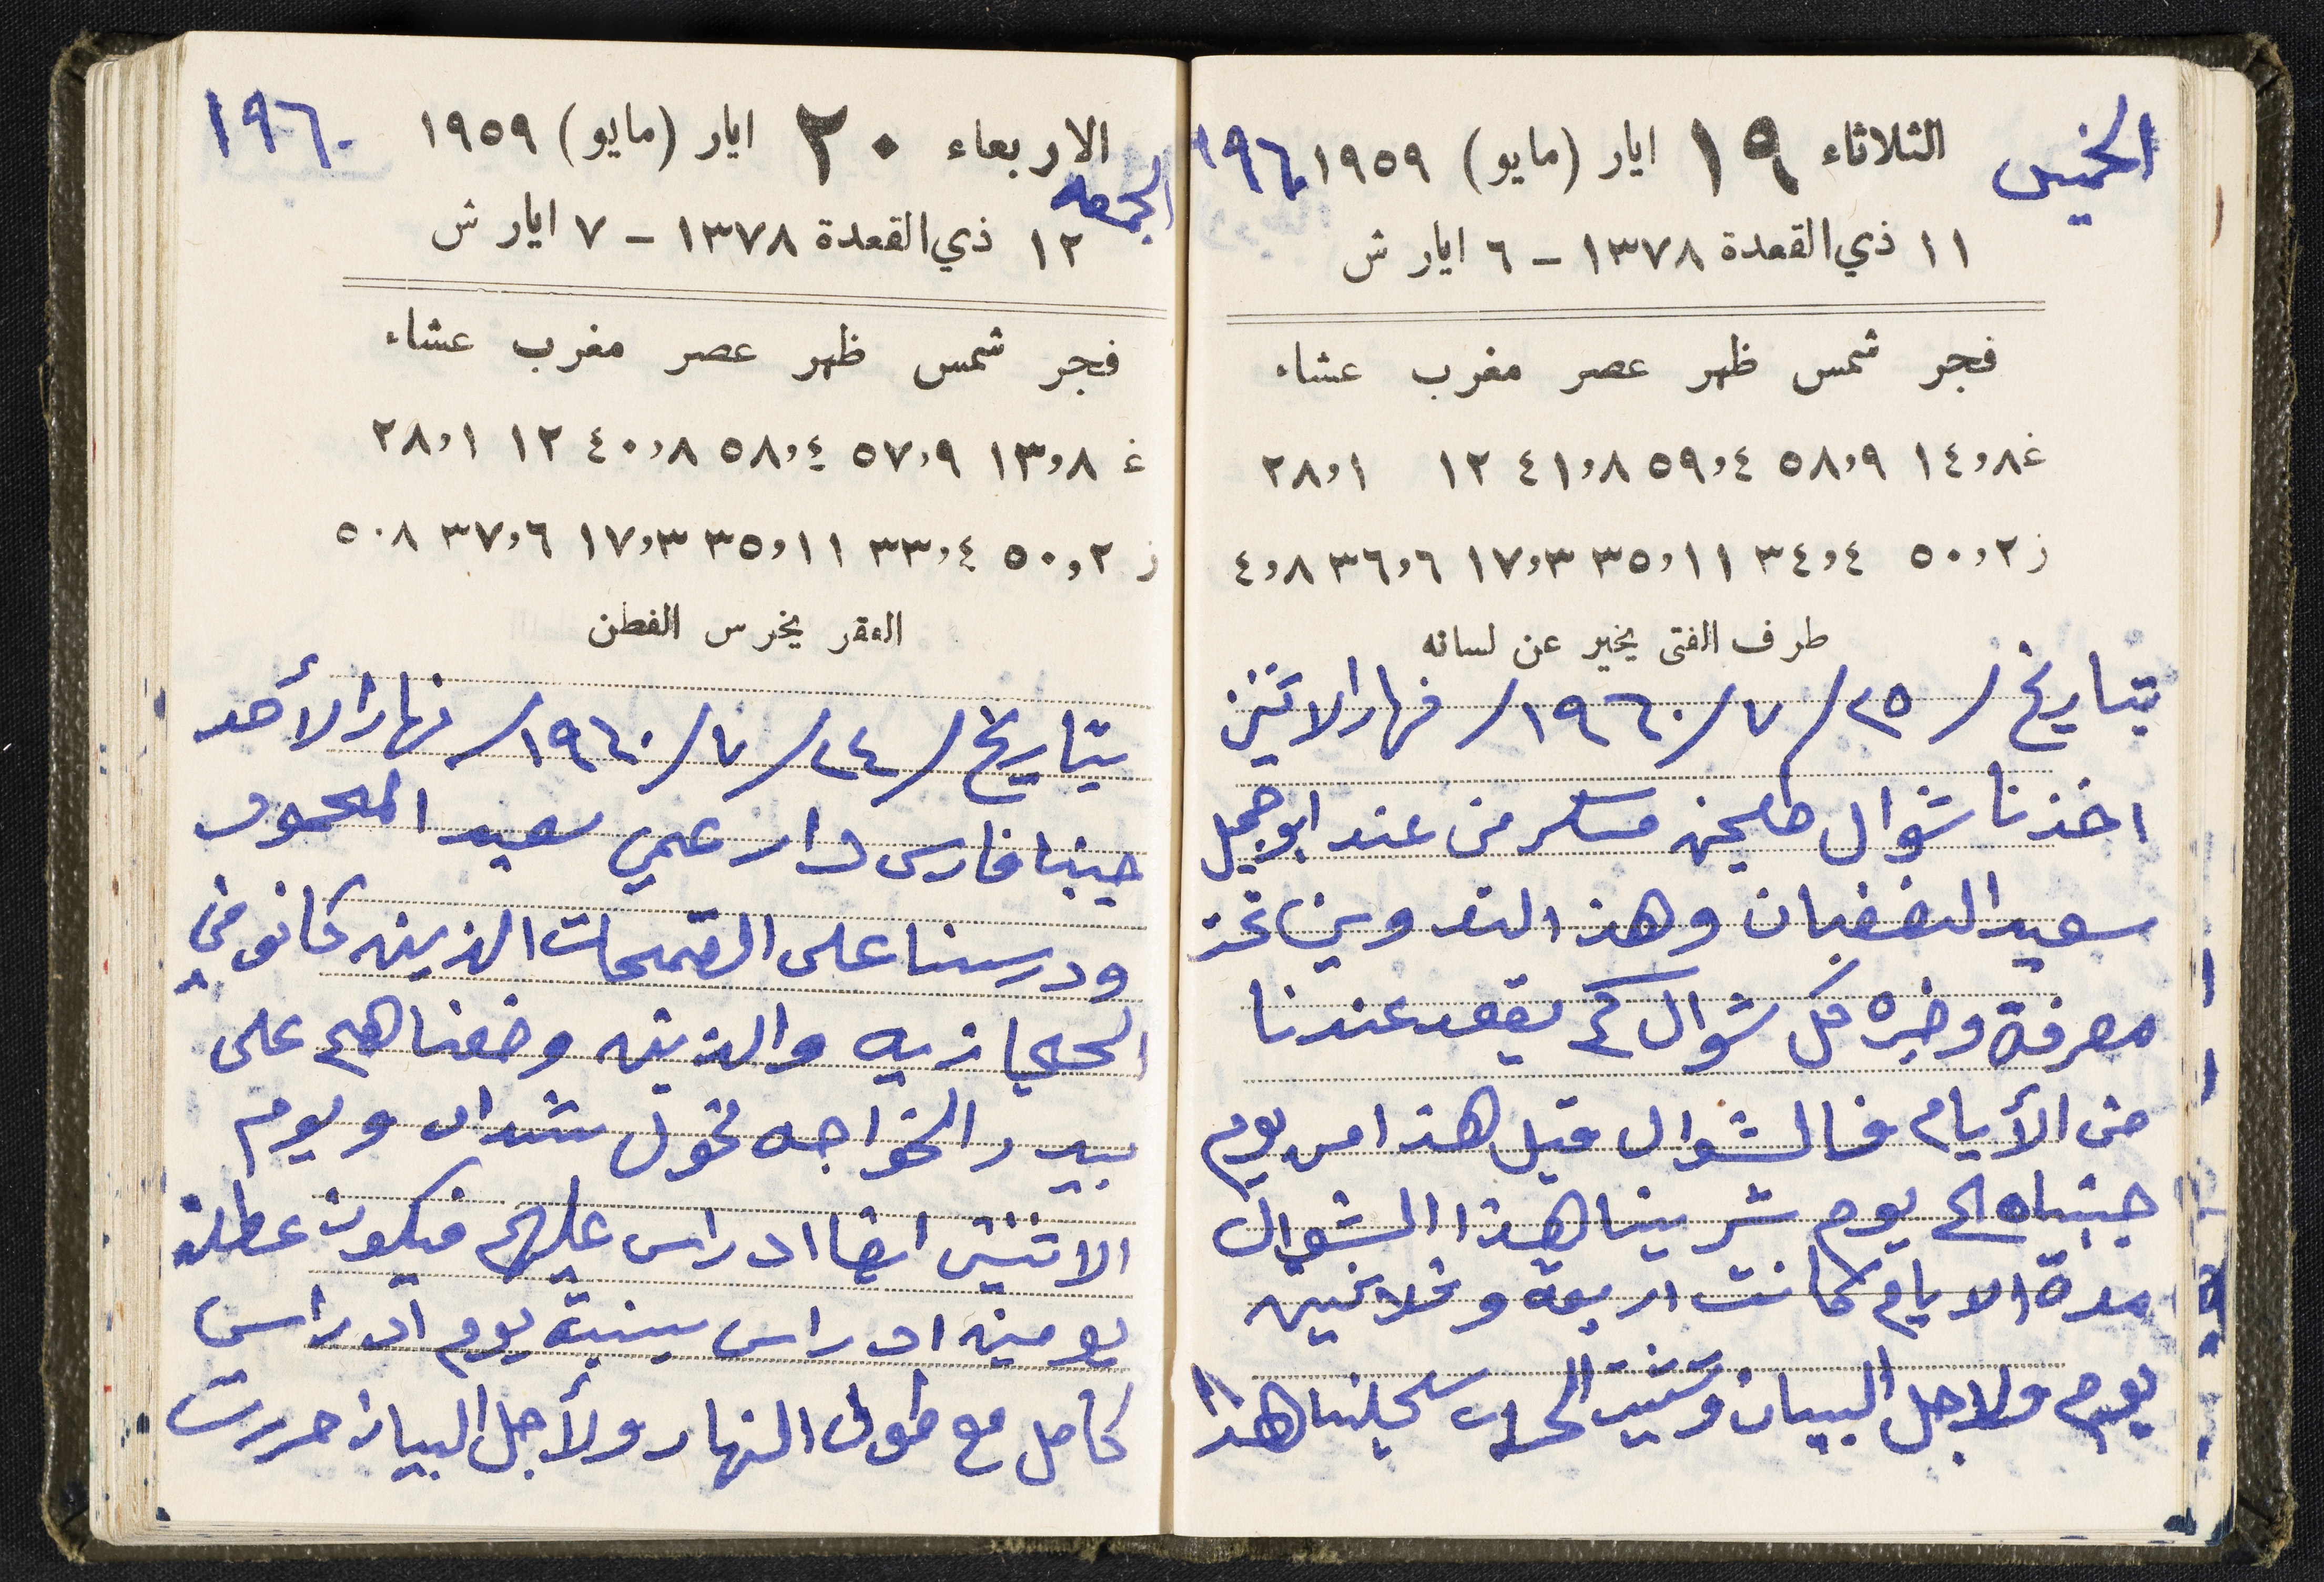 الخميس
الثلاثاء ١٩ ايار (مايو) ١٩٥٩ ١٩٦٠
١١ ذي القعدة ١٣٧٨ – ٦ ايار ش
فجر شمس ظهر عصر مغرب عشاء
غ ١٤,٨ ٥٨,٩ ٥٩,٤ ٤١,٨ ١٢ ٢٨,١
ز ٥٠,٢ ٣٤,٤ ٣٥,١١ ١٧,٣ ٣٦,٦ ٤,٨
طرف الفتى يخبر عن لسانه
بتاريخ / ٢٥ / ٧ / ١٩٦٠ / نهار الاثنين
اخذنا شوال طحين من عند ابو جميل
سعيد الغضبان وهذا التدوين
معرفة وخبره كل شوال كم يقعد عندنا
من الأيام فالشوال قبل هذا امن يوم
جبناه الى يوم شرينا هذا الشوال
مدة الايام كانت اربعة وثلاثين
يوم ولاجل البيان سجلنا هذا
الاربعاء ٢٠ ايار (مايو) ١٩٥٩ ١٩٦٠
الجمعه
١٢ ذي القعدة ١٣٧٨ – ٧ ايار ش
فجر شمس ظهر عصر مغرب عشاء
غ ١٣,٨ ٥٧,٩ ٥٨,٤ ٤٠,٨ ١٢ ٢٨,١
ز ٥٠,٢ ٣٣,٤ ٣٥,١١ ١٧,٣ ٣٧,٦ ٥٠٨
الفقر يخرس الفطن
بتاريخ / ٢٤ / ٧ / ١٩٦٠ / نهار الأحد
جبنا فارس دار عمي سعيد المحمود
ودرسنا على القمحات الذين كانو في
الحجازيه والذين وضعناهم على
بيدر الخواجه شداد ويوم
الاثنين ايضا ادراس عليهم فيكون عطلة
يومين ادراس يوم ادراس
كامل مع طول النهار ولأجل البيان حررت